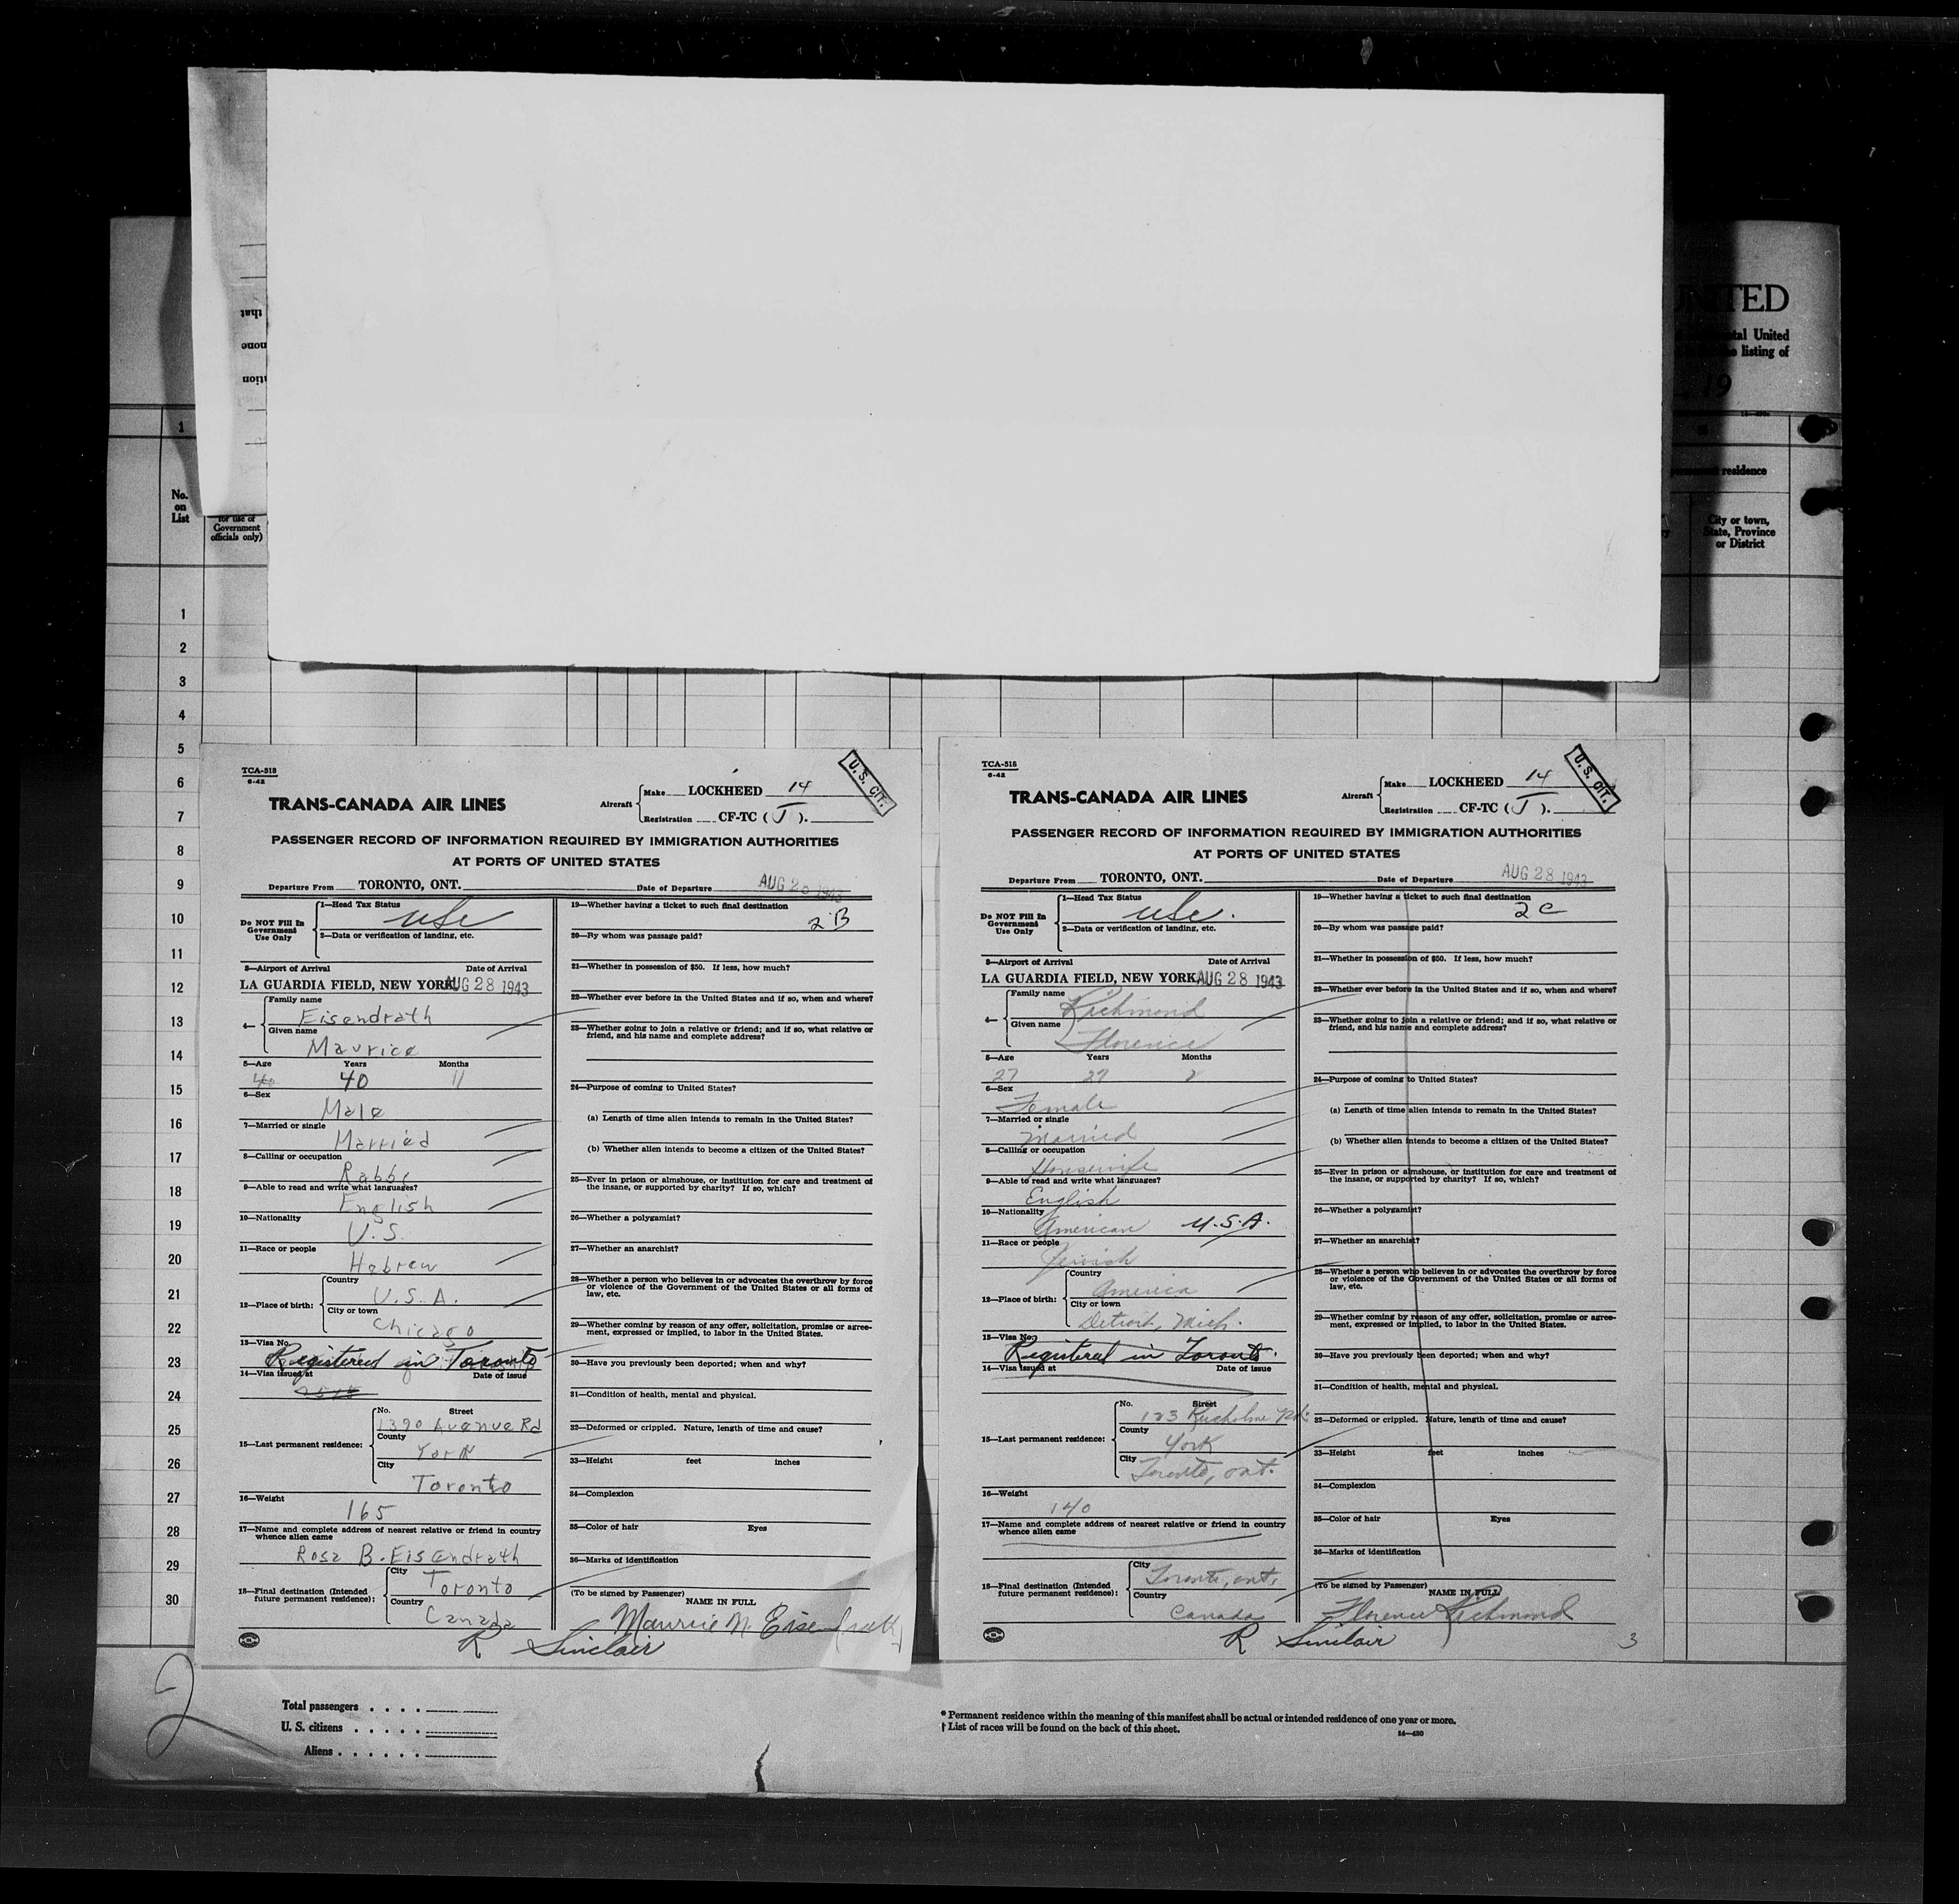 UNITED
tal United
listing of
19
that
none
ition
1
residence
No.
on
List
for use of
Government
officials only)
City or town,
State, Province
or District
1
2
3
4
5
6
7
8
9
10
11
12
13
14
15
16
17
18
19
20
21
22
23
24
25
26
27
28
29
30
TCA-518
6-42
U. S. CIT.
TRANS-CANADA AIR LINES
Aircraft
Make LOCKHEED 14
Registration CF-TC ( J ).
PASSENGER RECORD OF INFORMATION REQUIRED BY IMMIGRATION AUTHORITIES
AT PORTS OF UNITED STATES
Departure From TORONTO, ONT. Date of Departure AUG 28 1943
Do NOT Fill In
Government
Use Only
1—Head Tax Status
usc
2—Data or verification of landing, etc.
3—Airport of Arrival Date of Arrival
LA GUARDIA FIELD, NEW YORK AUG 28 1943
4—
Family name
Eisendrath
Given name
Maurice
5—Age Years Months
40 40 11
6—Sex
Male
7—Married or single
Married
8—Calling or occupation
Rabbi
9—Able to read and write what languages?
English
10—Nationality
U.S.
11—Race or people
Hebrew
12—Place of birth:
Country
U.S.A.
City or town
Chicago
13—Visa No.
Registered in Toronto
14—Visa issued at Date of issue
15—Last permanent residence:
No. Street
1390 Avenue Rd
County
York
City
Toronto
16—Weight
165
17—Name and complete address of nearest relative or friend in country
whence alien came
Rosa B. Eisendrath
18—Final destination (Intended
future permanent residence):
City
Toronto
Country
Canada
19—Whether having a ticket to such final destination
2 B
20—By whom was passage paid?
21—Whether in possession of $50. If less, how much?
22—Whether ever before in the United States and if so, when and where?
23—Whether going to join a relative or friend; and if so, what relative or
friend, and his name and complete address?
24—Purpose of coming to United States?
(a) Length of time alien intends to remain in the United States?
(b) Whether alien intends to become a citizen of the United States?
25—Ever in prison or almshouse, or institution for care and treatment of
the insane, or supported by charity? If so, which?
26—Whether a polygamist?
27—Whether an anarchist?
28—Whether a person who believes in or advocates the overthrow by force
or violence of the Government of the United States or all forms of
law, etc.
29—Whether coming by reason of any offer, solicitation, promise or agree-
ment, expressed or implied, to labor in the United States.
30—Have you previously been deported; when and why?
31—Condition of health, mental and physical.
32—Deformed or crippled. Nature, length of time and cause?
33—Height feet inches
34—Complexion
35—Color of hair Eyes
36—Marks of identification
(To be signed by Passenger)
NAME IN FULL
Maurice N. Eisendrath
R Sinclair
TCA-518
6-42
U. S. CIT.
TRANS-CANADA AIR LINES
Aircraft
Make LOCKHEED 14
Registration CF-TC ( J ).
PASSENGER RECORD OF INFORMATION REQUIRED BY IMMIGRATION AUTHORITIES
AT PORTS OF UNITED STATES
Departure From TORONTO, ONT. Date of Departure AUG 28 1943
Do NOT Fill In
Government
Use Only
1—Head Tax Status
usc.
2—Data or verification of landing, etc.
3—Airport of Arrival Date of Arrival
LA GUARDIA FIELD, NEW YORK AUG 28 1943
4—
Family name
Richmond
Given name
Florence
5—Age Years Months
27 27 2
6—Sex
Female
7—Married or single
Married
8—Calling or occupation
Housewife
9—Able to read and write what languages?
English
10—Nationality
American U.S.A.
11—Race or people
Jewish
12—Place of birth:
Country
America
City or town
Detroit, Mich.
13—Visa No.
Registered in Toronto.
14—Visa issued at Date of issue
15—Last permanent residence:
No. Street
123 Rusholme Rd.
County
York
City
Toronto, Ont.
16—Weight
140
17—Name and complete address of nearest relative or friend in country
whence alien came
18—Final destination (Intended
future permanent residence):
City
Toronto, Ont.
Country
Canada
19—Whether having a ticket to such final destination
2 C
20—By whom was passage paid?
21—Whether in possession of $50. If less, how much?
22—Whether ever before in the United States and if so, when and where?
23—Whether going to join a relative or friend; and if so, what relative or
friend, and his name and complete address?
24—Purpose of coming to United States?
(a) Length of time alien intends to remain in the United States?
(b) Whether alien intends to become a citizen of the United States?
25—Ever in prison or almshouse, or institution for care and treatment of
the insane, or supported by charity? If so, which?
26—Whether a polygamist?
27—Whether an anarchist?
28—Whether a person who believes in or advocates the overthrow by force
or violence of the Government of the United States or all forms of
law, etc.
29—Whether coming by reason of any offer, solicitation, promise or agree-
ment, expressed or implied, to labor in the United States.
30—Have you previously been deported; when and why?
31—Condition of health, mental and physical.
32—Deformed or crippled. Nature, length of time and cause?
33—Height feet inches
34—Complexion
35—Color of hair Eyes
36—Marks of identification
(To be signed by Passenger)
NAME IN FULL
Florence Richmond
R Sinclair
3
2
Total passengers
U. S. citizens
Aliens
* Permanent residence within the meaning of this manifest shall be actual or intended residence of one year or more.
† List of races will be found on the back of this sheet.